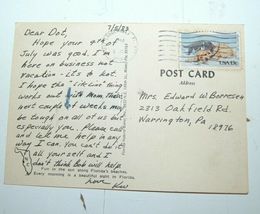 7/5/83
Dear Dot,
Hope your 4th of
July was good. I'm
here on business not
vacation - It's hot.
I hope the
works out with Mom. The
next couple of weeks may
be tough on all of us but
especially you. Please call
and let me help in any
way I can. You can't do it
all yourself and I
don't think Bob will help
Love
Fun in the sun along Florida's beaches.
Every morning is a beautiful sight in Florida.
USA 13c
POST CARD
Address
Mrs. Edward W. Borresen
2313 Oakfield Rd.
Warrington, Pa
18976